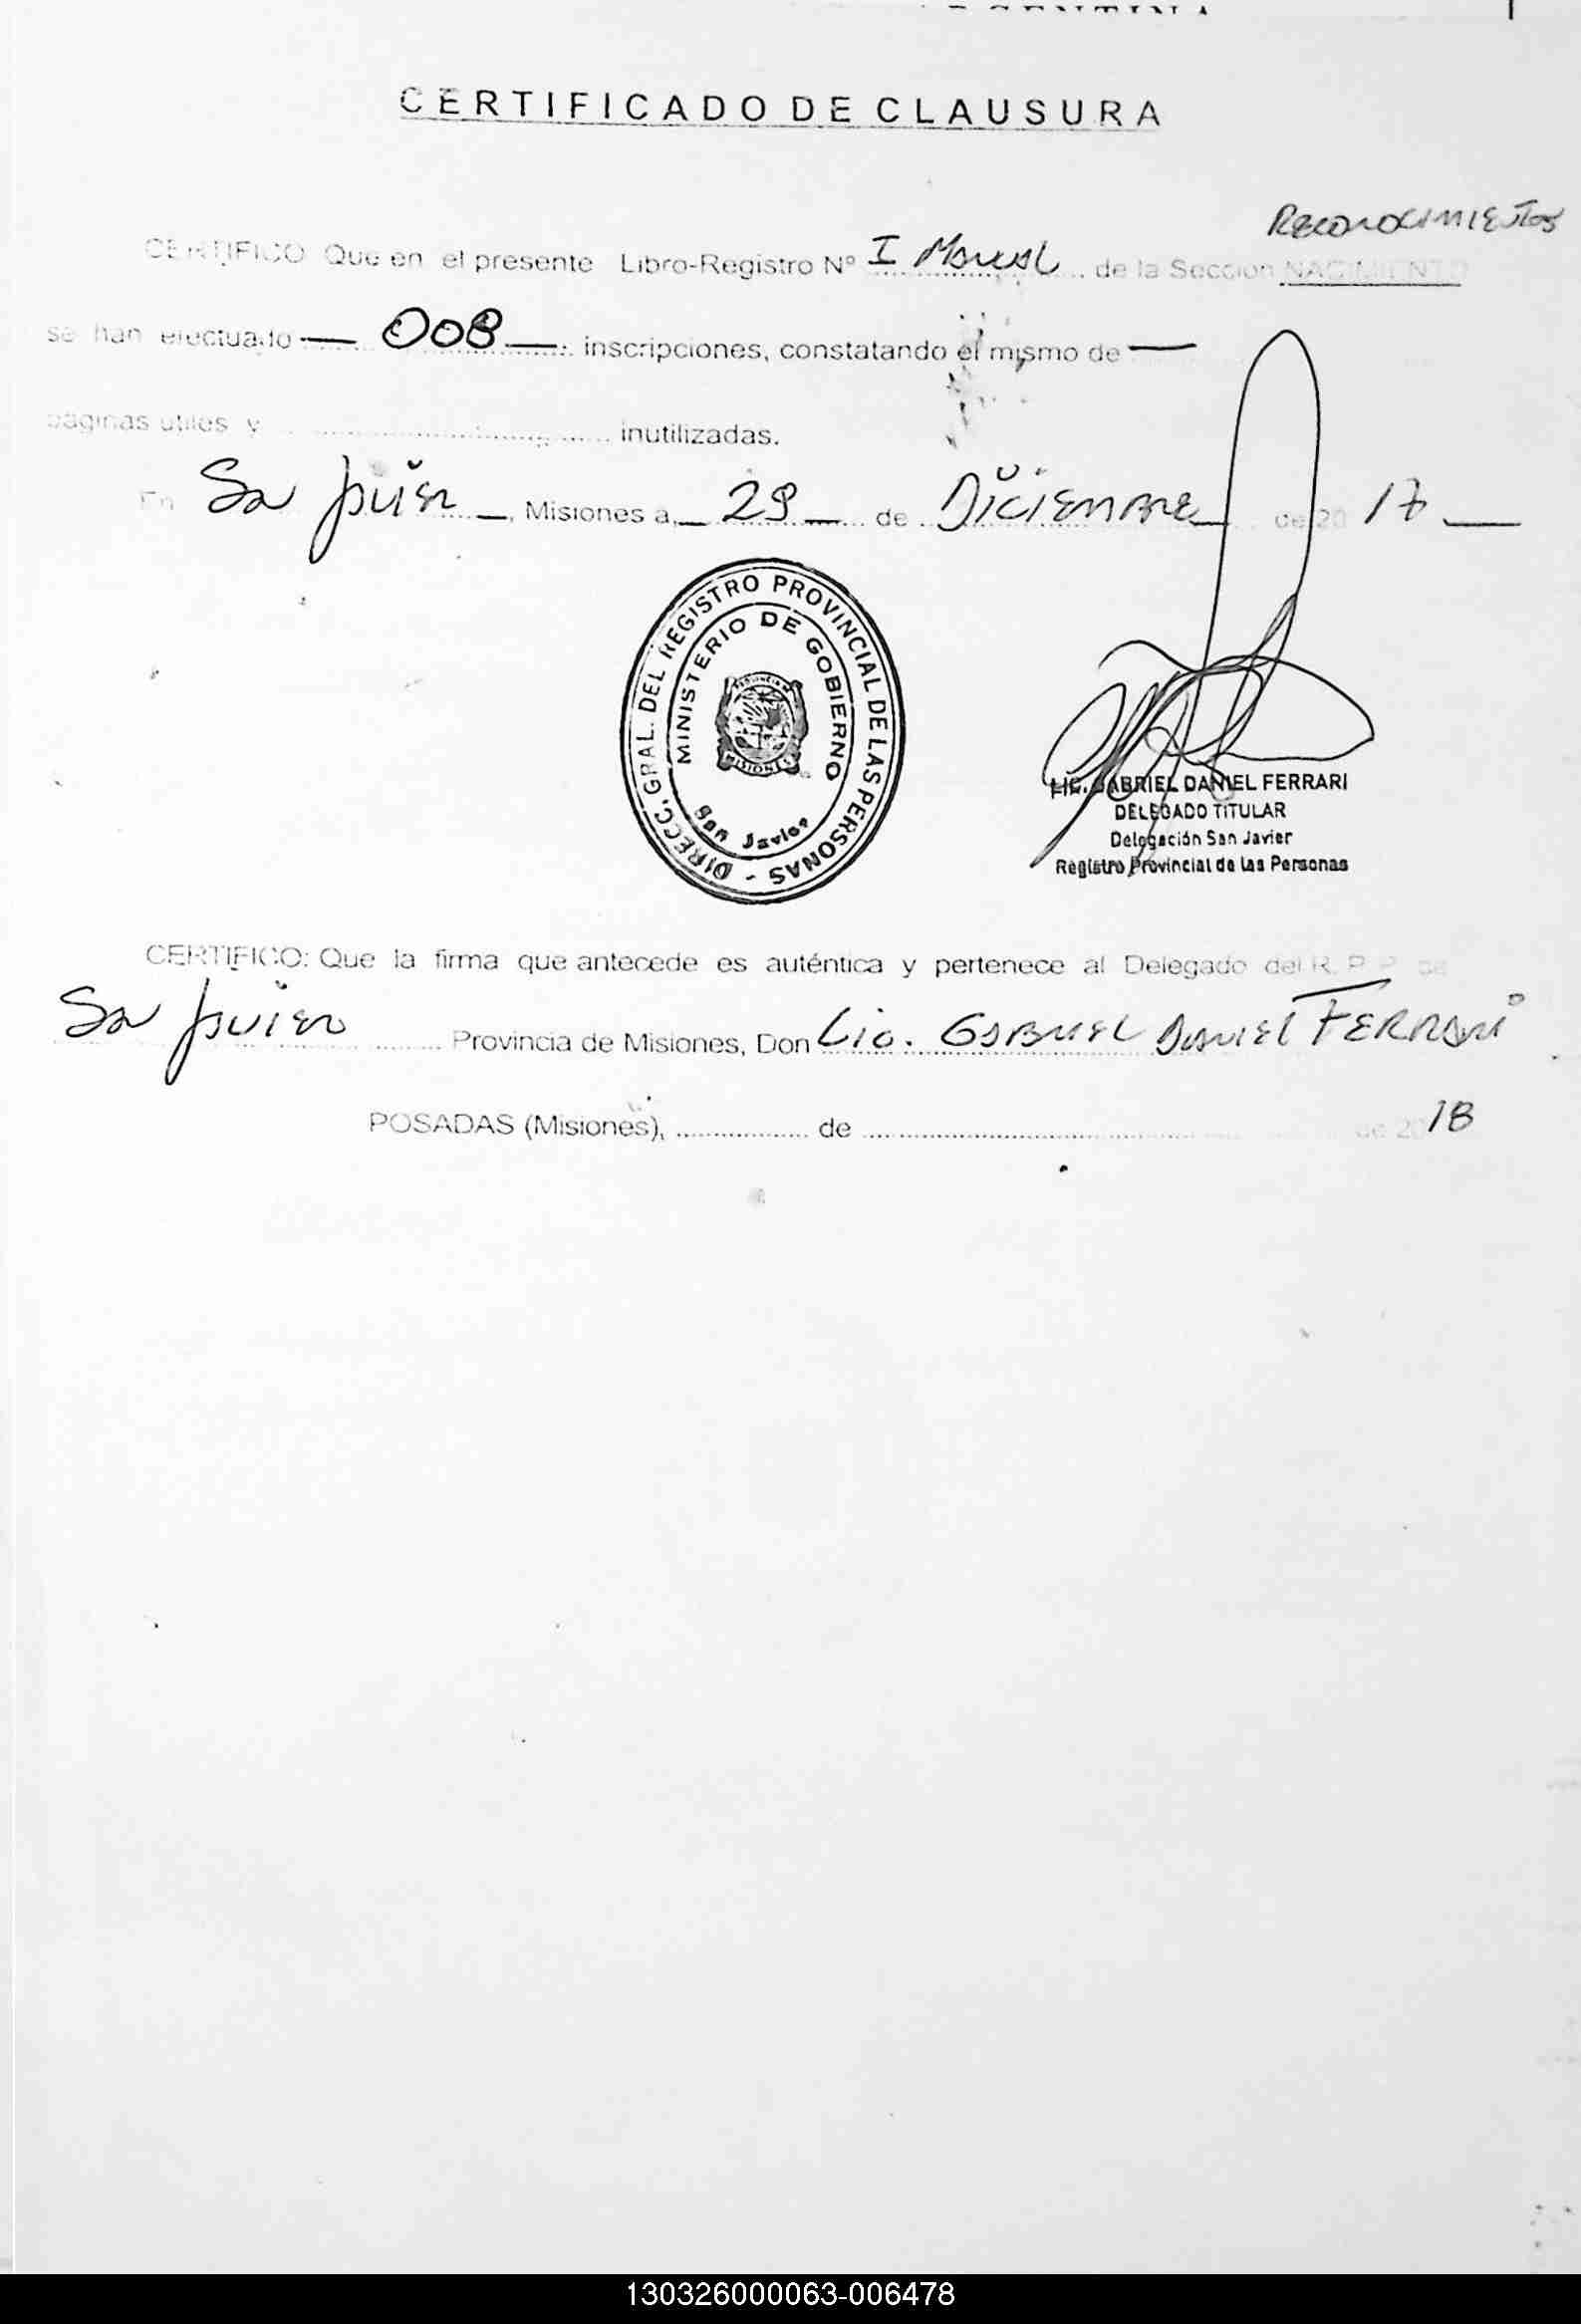 CERTIFICADO DE CLAUSURA
RECONOCIMIENTOS
CERTIFICO Que en el presente Libro-Registro Nº I Manual de la Sección NACIMIENTO
se han efectuado — 008 — inscripciones, constatando el mismo de —
páginas utiles y inutilizadas.
En San Javier —, Misiones a, — 29 — de Diciembre de 2017 —
DIRECC. GRAL. DEL REGISTRO PROVINCIAL DE LAS PERSONAS -
MINISTERIO DE GOBIERNO
PROVINCIA DE
MISIONES
San Javier
LIC. GABRIEL DANIEL FERRARI
DELEGADO TITULAR
Delegación San Javier
Registro Provincial de las Personas
CERTIFICO: Que la firma que antecede es auténtica y pertenece al Delegado del R. P. P. de
San Javier Provincia de Misiones, Don Lic. GABRIEL DANIEL FERRARI
POSADAS (Misiones), de de 2018
130326000063-006478